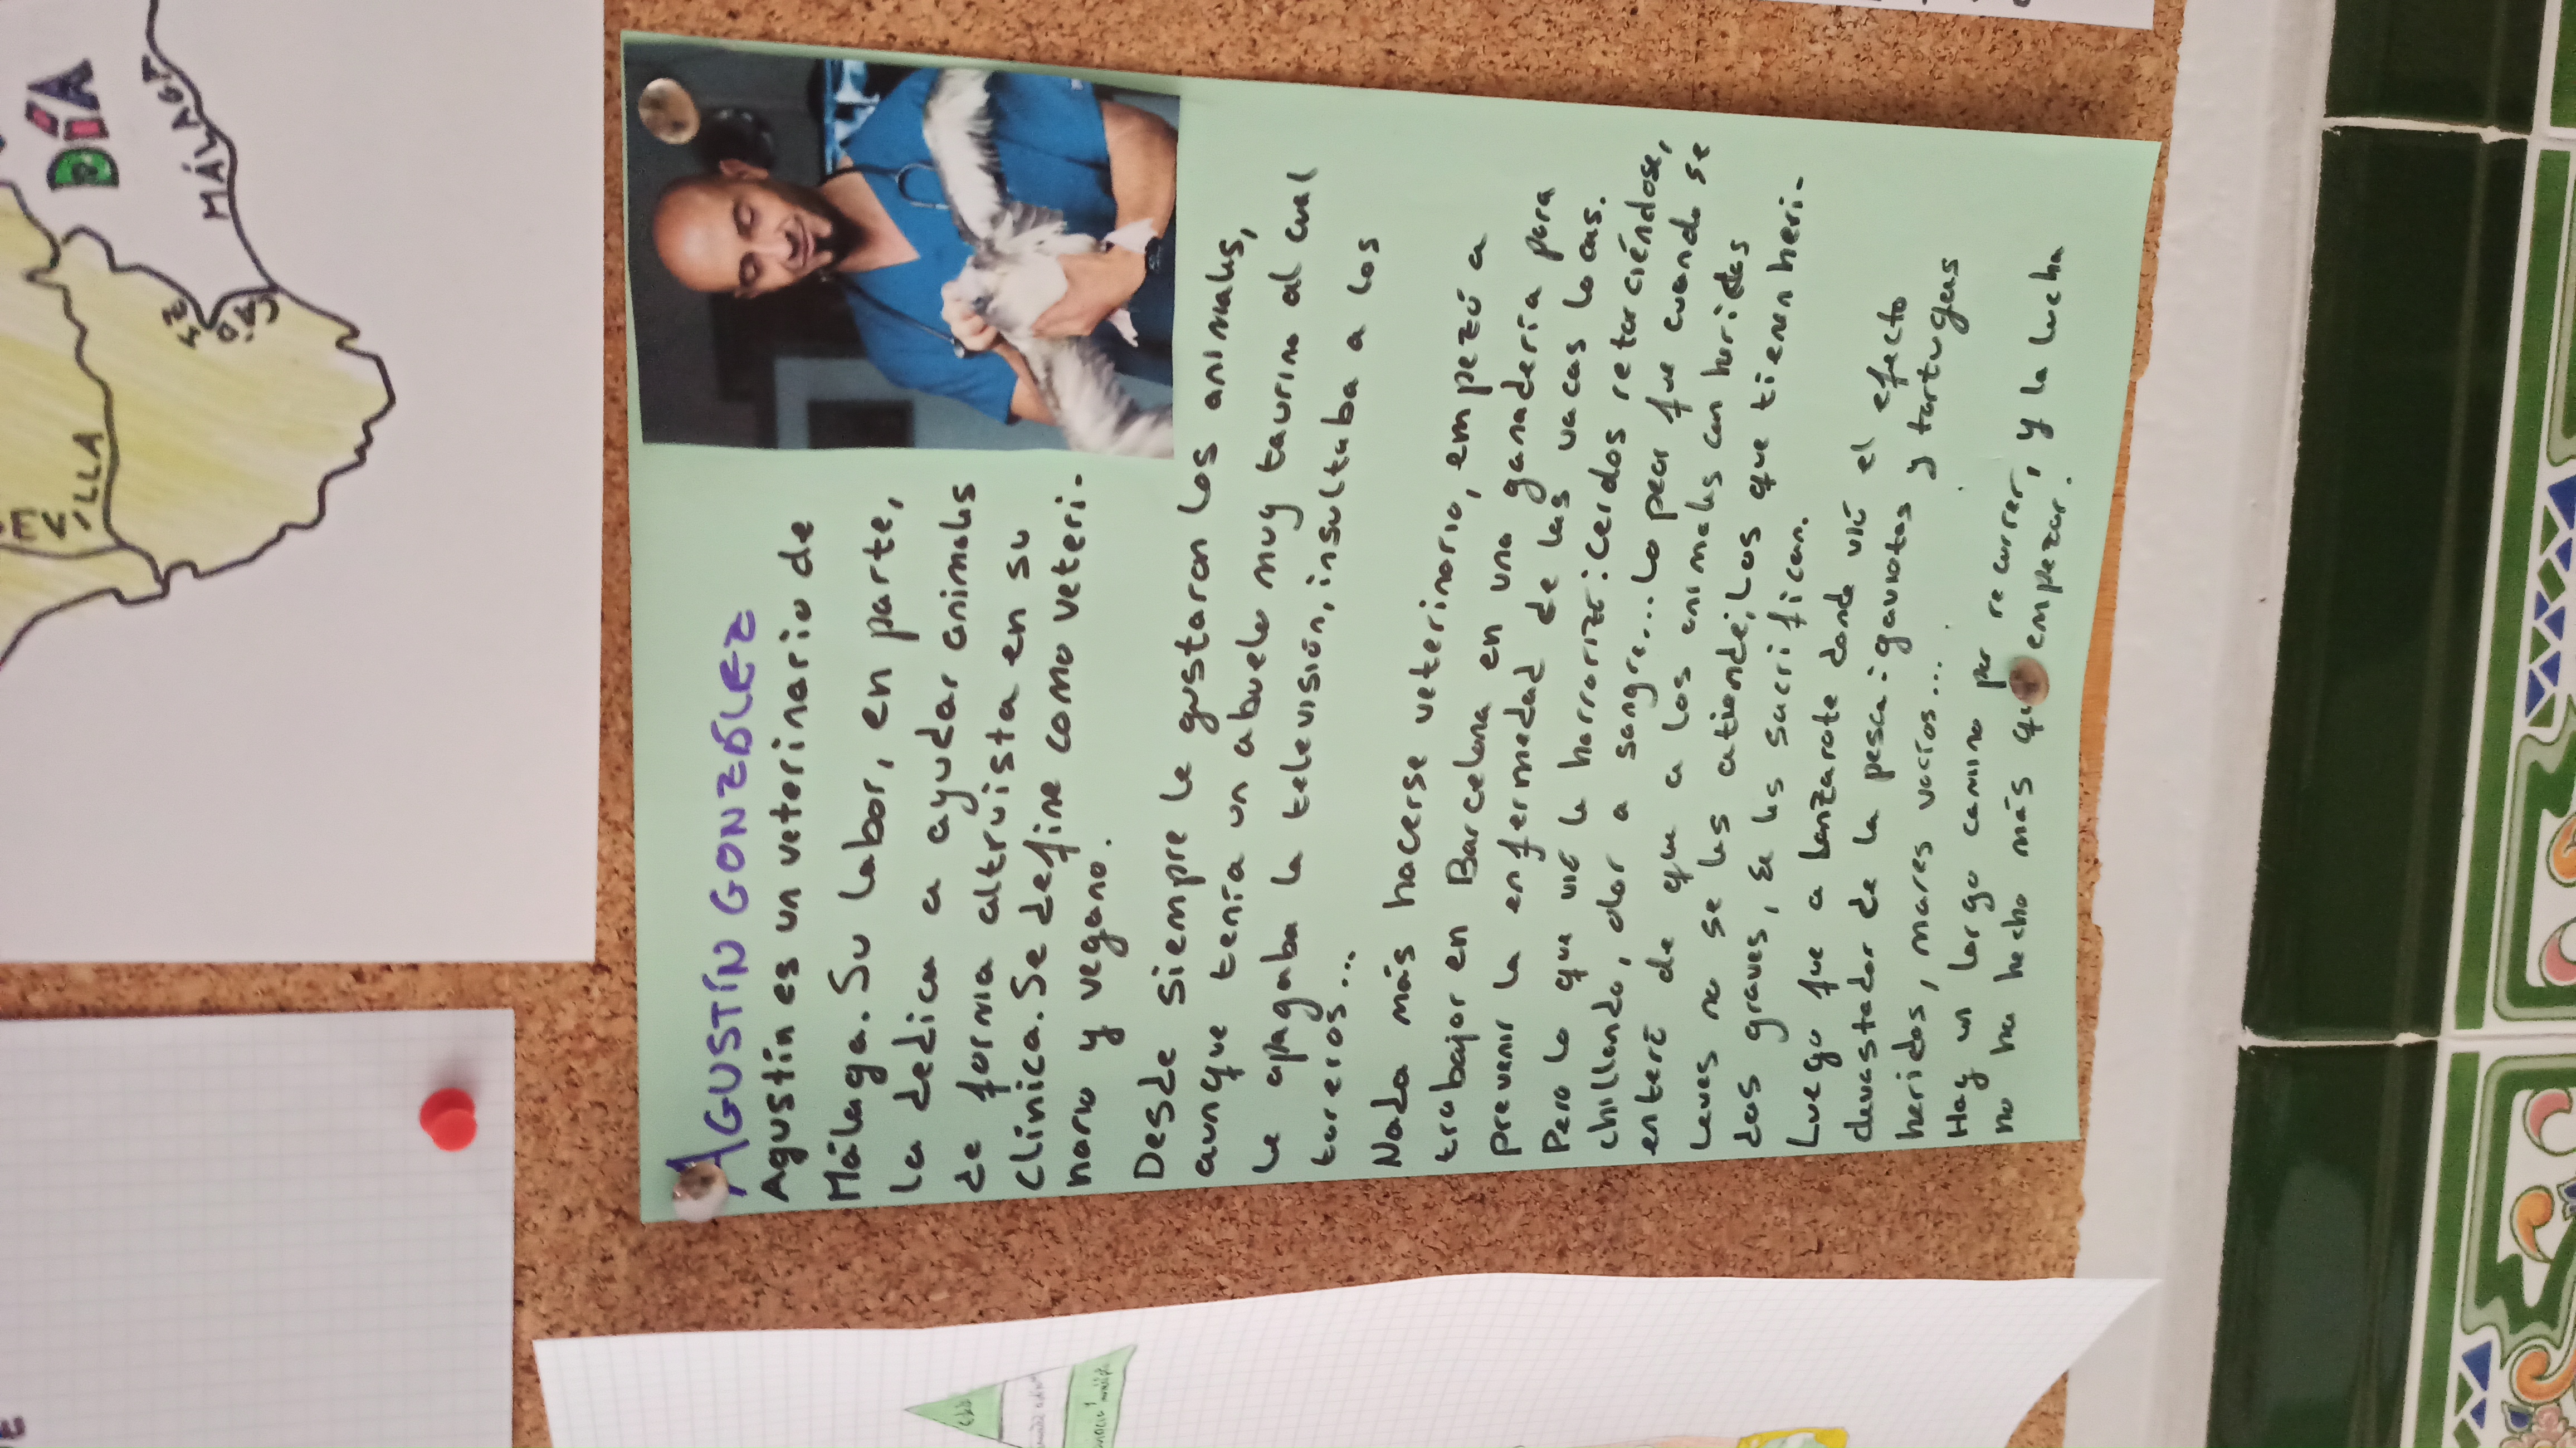 AGUSTÍN GONZÁLEZ
Agustín es un veterinario de
Málaga. Su labor, en parte,
la dedica a ayudar animales
de forma altruista en su
clínica. Se define como veteri-
nario y vegano.
Desde siempre le gustaron los animales,
aunque tenía un abuelo muy taurino al cual
le apagaba la televisión, insultaba a los
toreros...
Nada más hacerse veterinario, empezó a
trabajar en Barcelona en una ganadería para
prevenir la enfermedad de las vacas locas.
Pero lo que vió le horrorizó: cerdos retorciéndose,
chillando, olor a sangre... Lo peor fue cuando se
enteró de que a los animales con heridas
leves no se les atiende; Los que tienen heri-
das graves, se les sacrifican.
Luego fue a Lanzarote donde vió el efecto
devastador de la pesca: gaviotas y tortugas
heridas, mares vacíos...
Hay un largo camino por recorrer, y la lucha
no ha hecho más que empezar.
DÍA
MÁLAGA
CÁ
DIZ
SE
VILLA